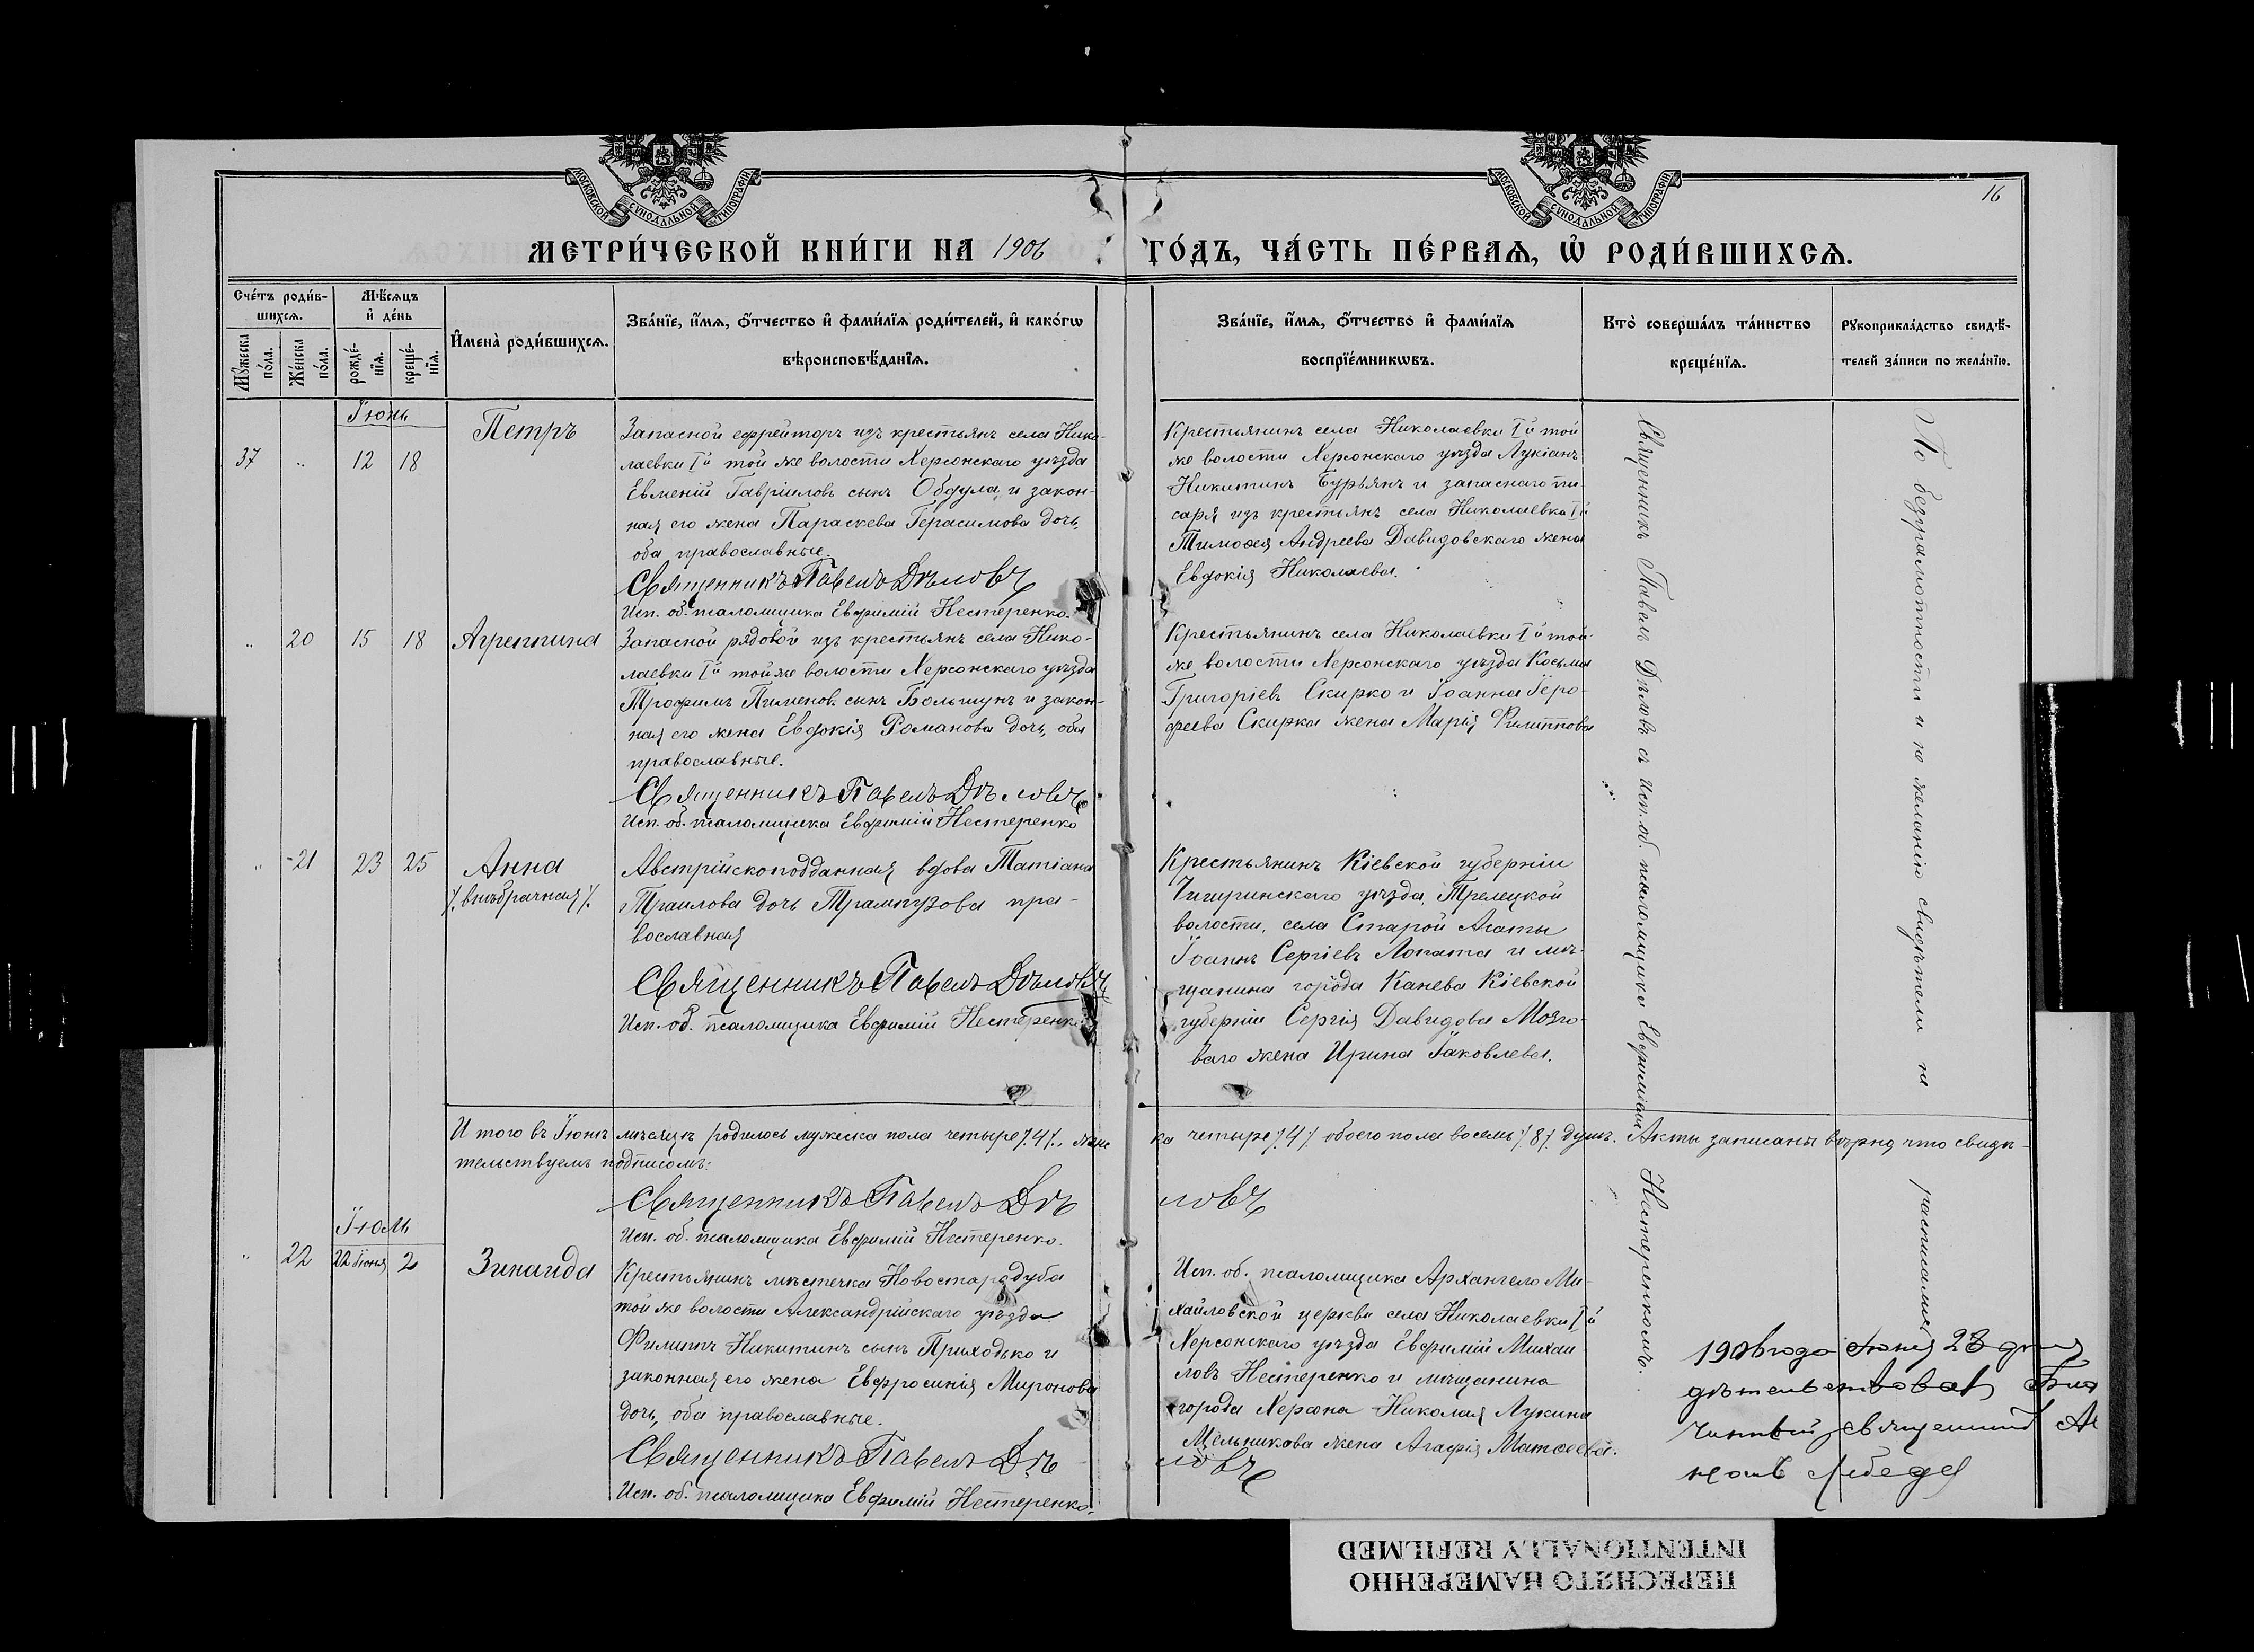 МОСКОВСКОЙ СУНОДАЛЬНОЙ ТИПОГРАФІИ
МОСКОВСКОЙ СУНОДАЛЬНОЙ ТИПОГРАФІИ
16
МЕТРИ́ЧЕСКОЙ КНИ́ГИ НА 1906 ГО́ДЪ, ЧА́СТЬ ПЕ́РВАѦ, Ѡ҆ РОДИ́ВШИХСѦ.
Сче́тъ роди́в-
шихсѧ.
Мꙋ́жеска по́ла.
Же́нска по́ла.
Мѣ́сѧцъ и҆ де́нь
рожде́-нїѧ.
креще́-нїѧ.
И҆мена̀ роди́вшихсѧ.
Зва́нїе, и҆́мѧ, ѻ҆́тчество и҆ фами́лїѧ роди́телей, и҆ како́гѡ
вѣроисповѣ́данїѧ.
Зва́нїе, и҆́мѧ, ѻ҆́тчество и҆ фами́лїѧ
воспрїе́мникѡвъ.
Кто̀ соверша́лъ та́инство
креще́нїѧ.
Рꙋкоприкла́дство свидѣ́-
телей за́писи по жела́нїю.
Іюнь
37 " 12 18
Петръ
Запасной ефрейторъ изъ крестьянъ села Нико-
лаевки Iй той же волости Херсонскаго уѣзда
Евменій Гавріиловъ сынъ Обдула и закон-
ная его жена Параскева Герасимова дочь,
оба православные.
Священникъ Павелъ Дѣловъ
Исп. об. псаломщика Евфимій Нестеренко.
Крестьянинъ села Николаевки Iй той
же волости Херсонскаго уѣзда Лукіанъ
Никитинъ Бурьянъ и запаснаго пи-
саря изъ крестьянъ села Николаевка Iй
Тимоѳея Андреева Давидовскаго жена
Евдокія Николаева.
" 20 15 18
Агреппина
Запасной рядовой изъ крестьянъ села Нико-
лаевки Iй той же волости Херсонскаго уѣзда
Трофимъ Пименов. сынъ Большунъ и закон-
ная его жена Евдокія Романова дочь, оба
православные.
Священникъ Павелъ Дѣловъ
Исп. об. псаломщика Евфимій Нестеренко
Крестьянинъ села Николаевки Iй той-
же волости Херсонскаго уѣзда Косьма
Григоріевъ Скирко и Іоанна Іеро-
феева Скирка жена Марія Филиппова
" 21 23 25
Анна
/. внѣбрачная ./
Австрійскоподданная вдова Татіана
Траилова дочь Трампузова пра-
вославная
Священникъ Павелъ Дѣловъ
Исп. об. псаломщика Евфимій Нестеренко
Крестьянинъ Кіевской губерніи
Чигиринскаго уѣзда, Трелецкой
волости, села Старой Агаты
Іоаннъ Сергіевъ Лопата и мѣ-
щанина города Канева Кіевской
губерніи Сергія Давидова Мозго-
ваго жена Ирина Іаковлева.
Священникъ Павелъ Дѣловъ съ исп. об. псаломщика Евфиміемъ Нестеренкомъ.
По безграмотности и не желанію свидѣтели не расписались
Итого въ Іюнѣ мѣсяцѣ родилось мужеска пола четыре /.4/., женс ка четыре /.4/. обоего пола восемь /.8/. душъ. Акты записаны вѣрно, что свидѣ-
тельствуемъ подписомъ:
Священникъ Павелъ Дѣ ловъ
Исп. об. псаломщика Евфимій Нестеренко.
Іюль
" 22 22 Іюня 2
Зинаида
Крестьянинъ мѣстечка Новостародуба
той же волости Александрійскаго уѣзда
Филиппъ Никитинъ сынъ Приходько и
законная его жена Евфросинія Миронова
дочь, оба православные.
Священникъ Павелъ Дѣ ловъ
Исп. об. псаломщика Евфимій Нестеренко.
Исп. об. псаломщика Архангело Ми-
хайловской церкви села Николаевки Iй
Херсонскаго уѣзда Евфимій Михаи-
ловъ Нестеренко и мѣщанина
города Херсона Николая Лукина
Мельникова жена Агафія Матѳеева.
1906 года Іюня 28 дня
чинный священникъ
ПЕРЕСНЯТО НАМЕРЕННО
INTENTIONALLY REFILMED